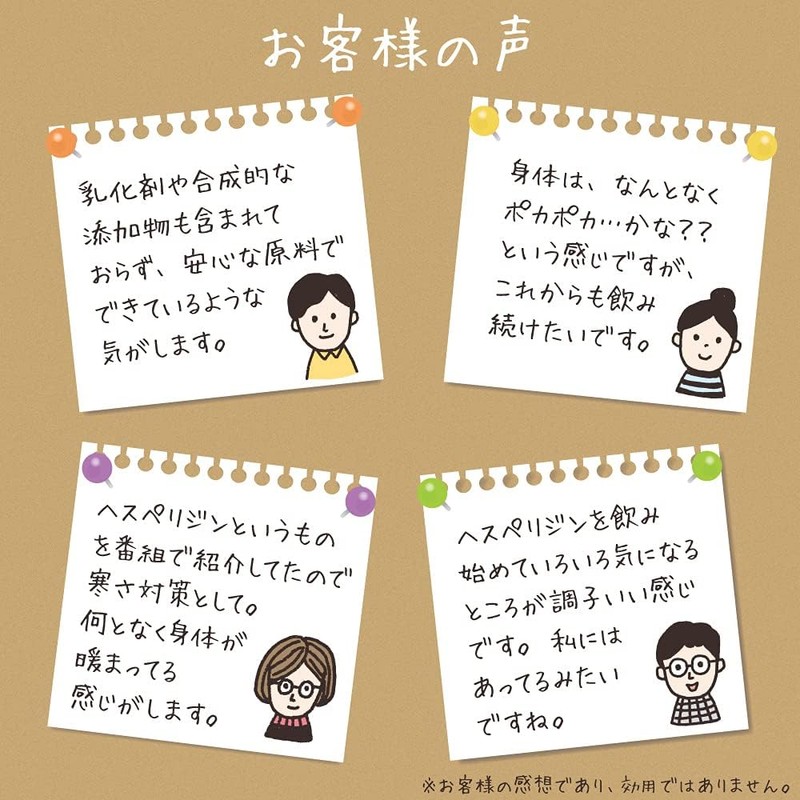 お客様の声
乳化剤や合成的な
添加物も含まれて
おらず、安心な原料で
できているような
気がします。
身体は、なんとなく
ポカポカ…かな??
という感じですが、
これからも飲み
続けたいです。
ヘスペリジンというもの
を番組で紹介してたので
寒さ対策として。
何となく身体が
暖まってる
感じがします。
ヘスペリジンを飲み
始めていろいろ気になる
ところが調子いい感じ
です。私には
あってるみたい
ですね。
※お客様の感想であり、効用ではありません。